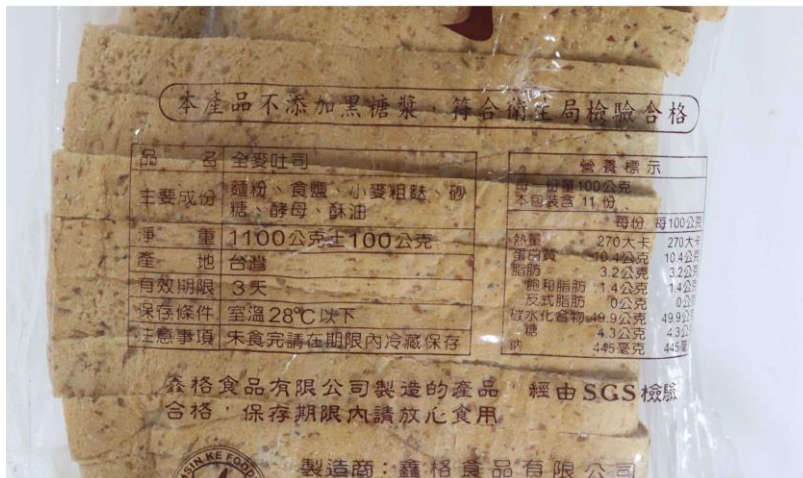 本產品不添加黑糖漿，符合衛生局檢驗合格
品 名 全麥吐司
主要成份 麵粉、食鹽、小麥粗麩、砂
糖、酵母、酥油
淨 重 1100公克±100公克
產 地 台灣
有效期限 3天
保存條件 室溫28℃以下
注意事項 未食完請在期限內冷藏保存
營養標示
每一份量100公克
本包裝含 11 份
每份 每100公克
熱量 270大卡 270大卡
蛋白質 10.4公克 10.4公克
脂肪 3.2公克 3.2公克
飽和脂肪 1.4公克 1.4公克
反式脂肪 0公克 0公克
碳水化合物 49.9公克 49.9公克
糖 4.3公克 4.3公克
鈉 445毫克 445毫
鑫格食品有限公司製造的產品，經由SGS檢驗
合格，保存期限內請放心食用
HSIN KE FOOD
製造商：鑫格食品有限公司